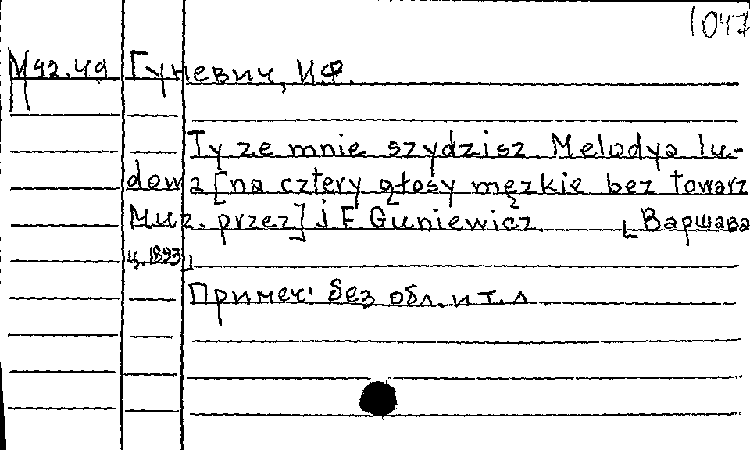 1047
М92.49 Гуневич, И.Ф.
Ty ze mnie szydzisz. Melodya lu-
dowa [na cztery głosy męzkie bez towarz
Muz. przez] J F Guniewicz. [Варшава
ц. 1893]
Примеч: без обл. и т. л